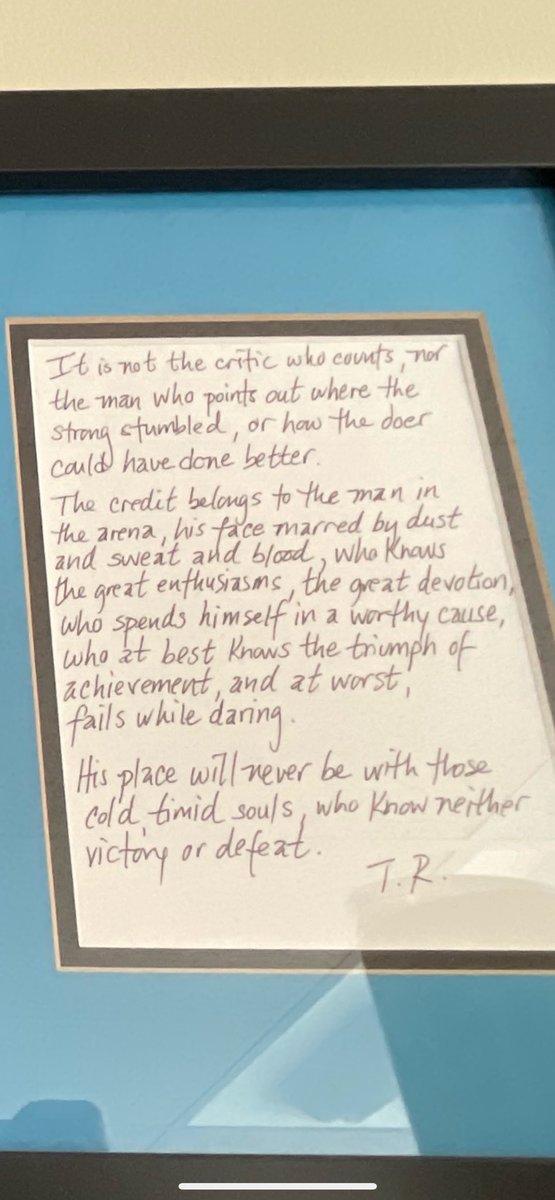 It is not the critic who counts, nor
the man who points out where the
strong stumbled, or how the doer
could have done better.
The credit belongs to the man in
the arena, his face marred by dust
and sweat and blood, who knows
the great enthusiasms, the great devotion,
who spends himself in a worthy cause,
who at best knows the triumph of
achievement, and at worst,
fails while daring.
His place will never be with those
cold, timid souls, who know neither
victory or defeat.
T.R.